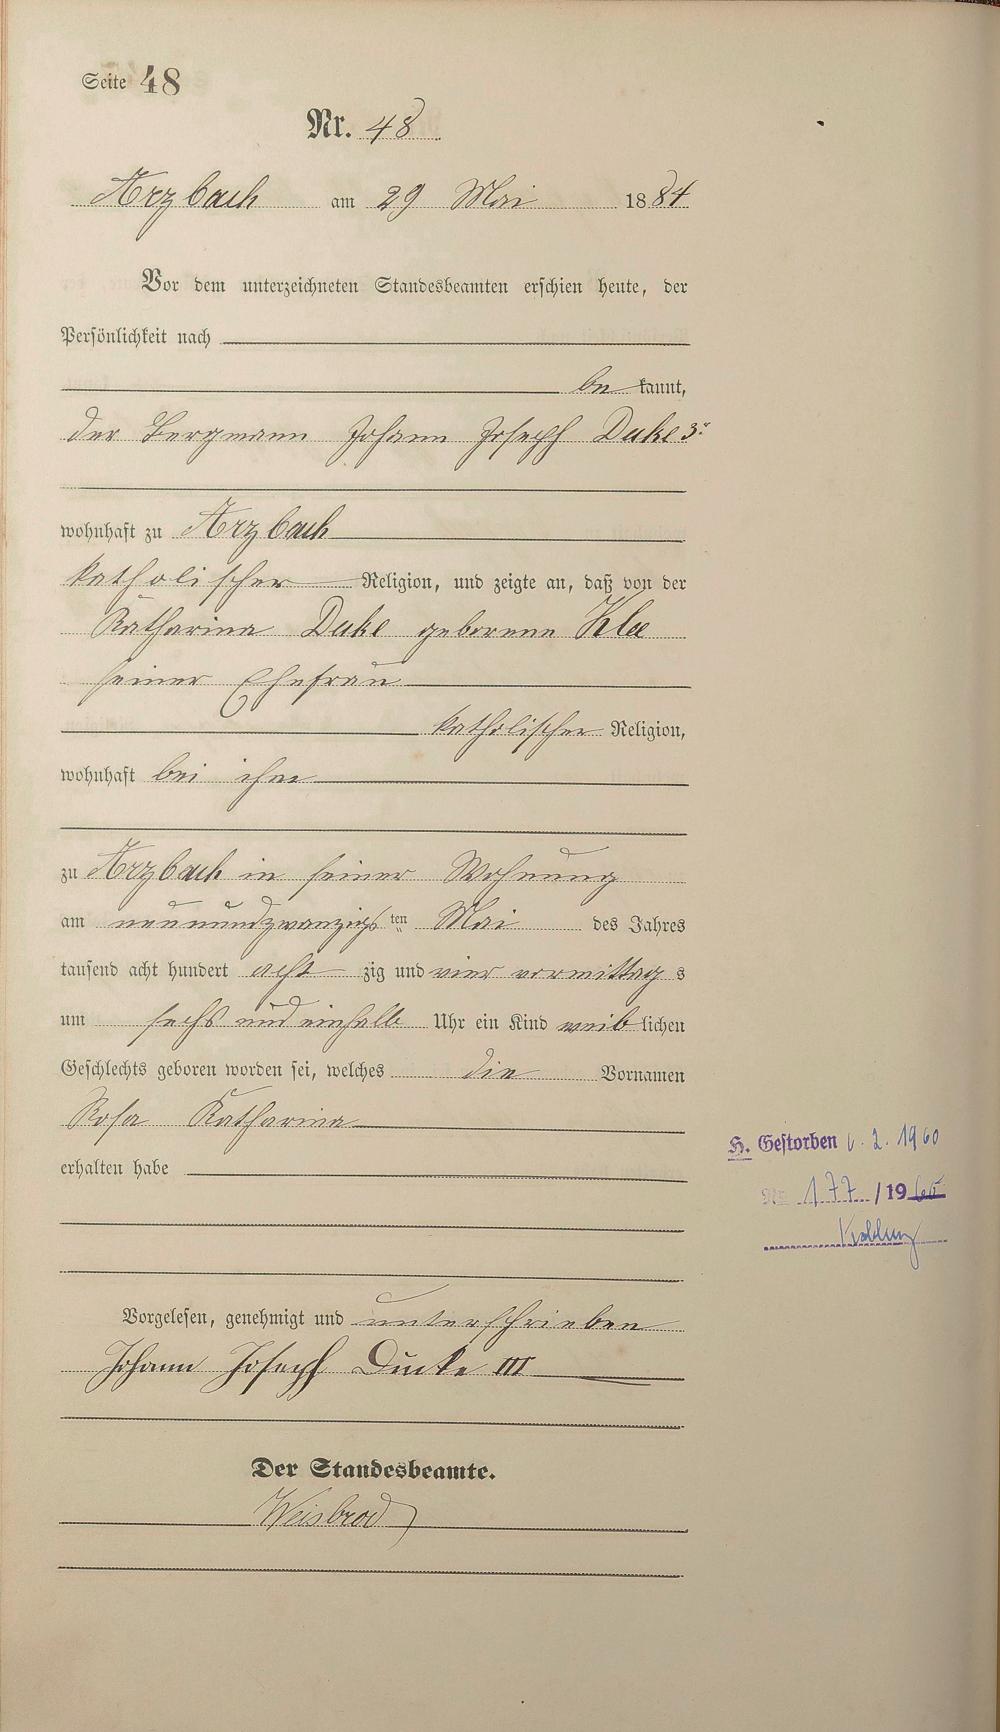 Seite 48
Nr. 48
Arzbach am 29 Mai 1884
Vor dem unterzeichneten Standesbeamten erschien heute, der
Persönlichkeit nach
be kannt,
der Bergmann Johann Joseph Duke 3r
wohnhaft zu Arzbach
katholischer Religion, und zeigte an, daß von der
Katharina Duke geborenen Klee
seiner Ehefrau
katholischer Religion,
wohnhaft bei ihm
zu Arzbach in seiner Wohnung
am neunundzwanzigsten Mai des Jahres
tausend acht hundert acht zig und vier vormittag s
um sechs und einhalb Uhr ein Kind weib lichen
Geschlechts geboren worden sei, welches die Vornamen
Rosa Katharina
erhalten habe
H. Gestorben 6. 2. 1960
Nr. 177 /19
Vorgelesen, genehmigt und unterschrieben
Johann Joseph Ducke III
Der Standesbeamte.
Weisbrod